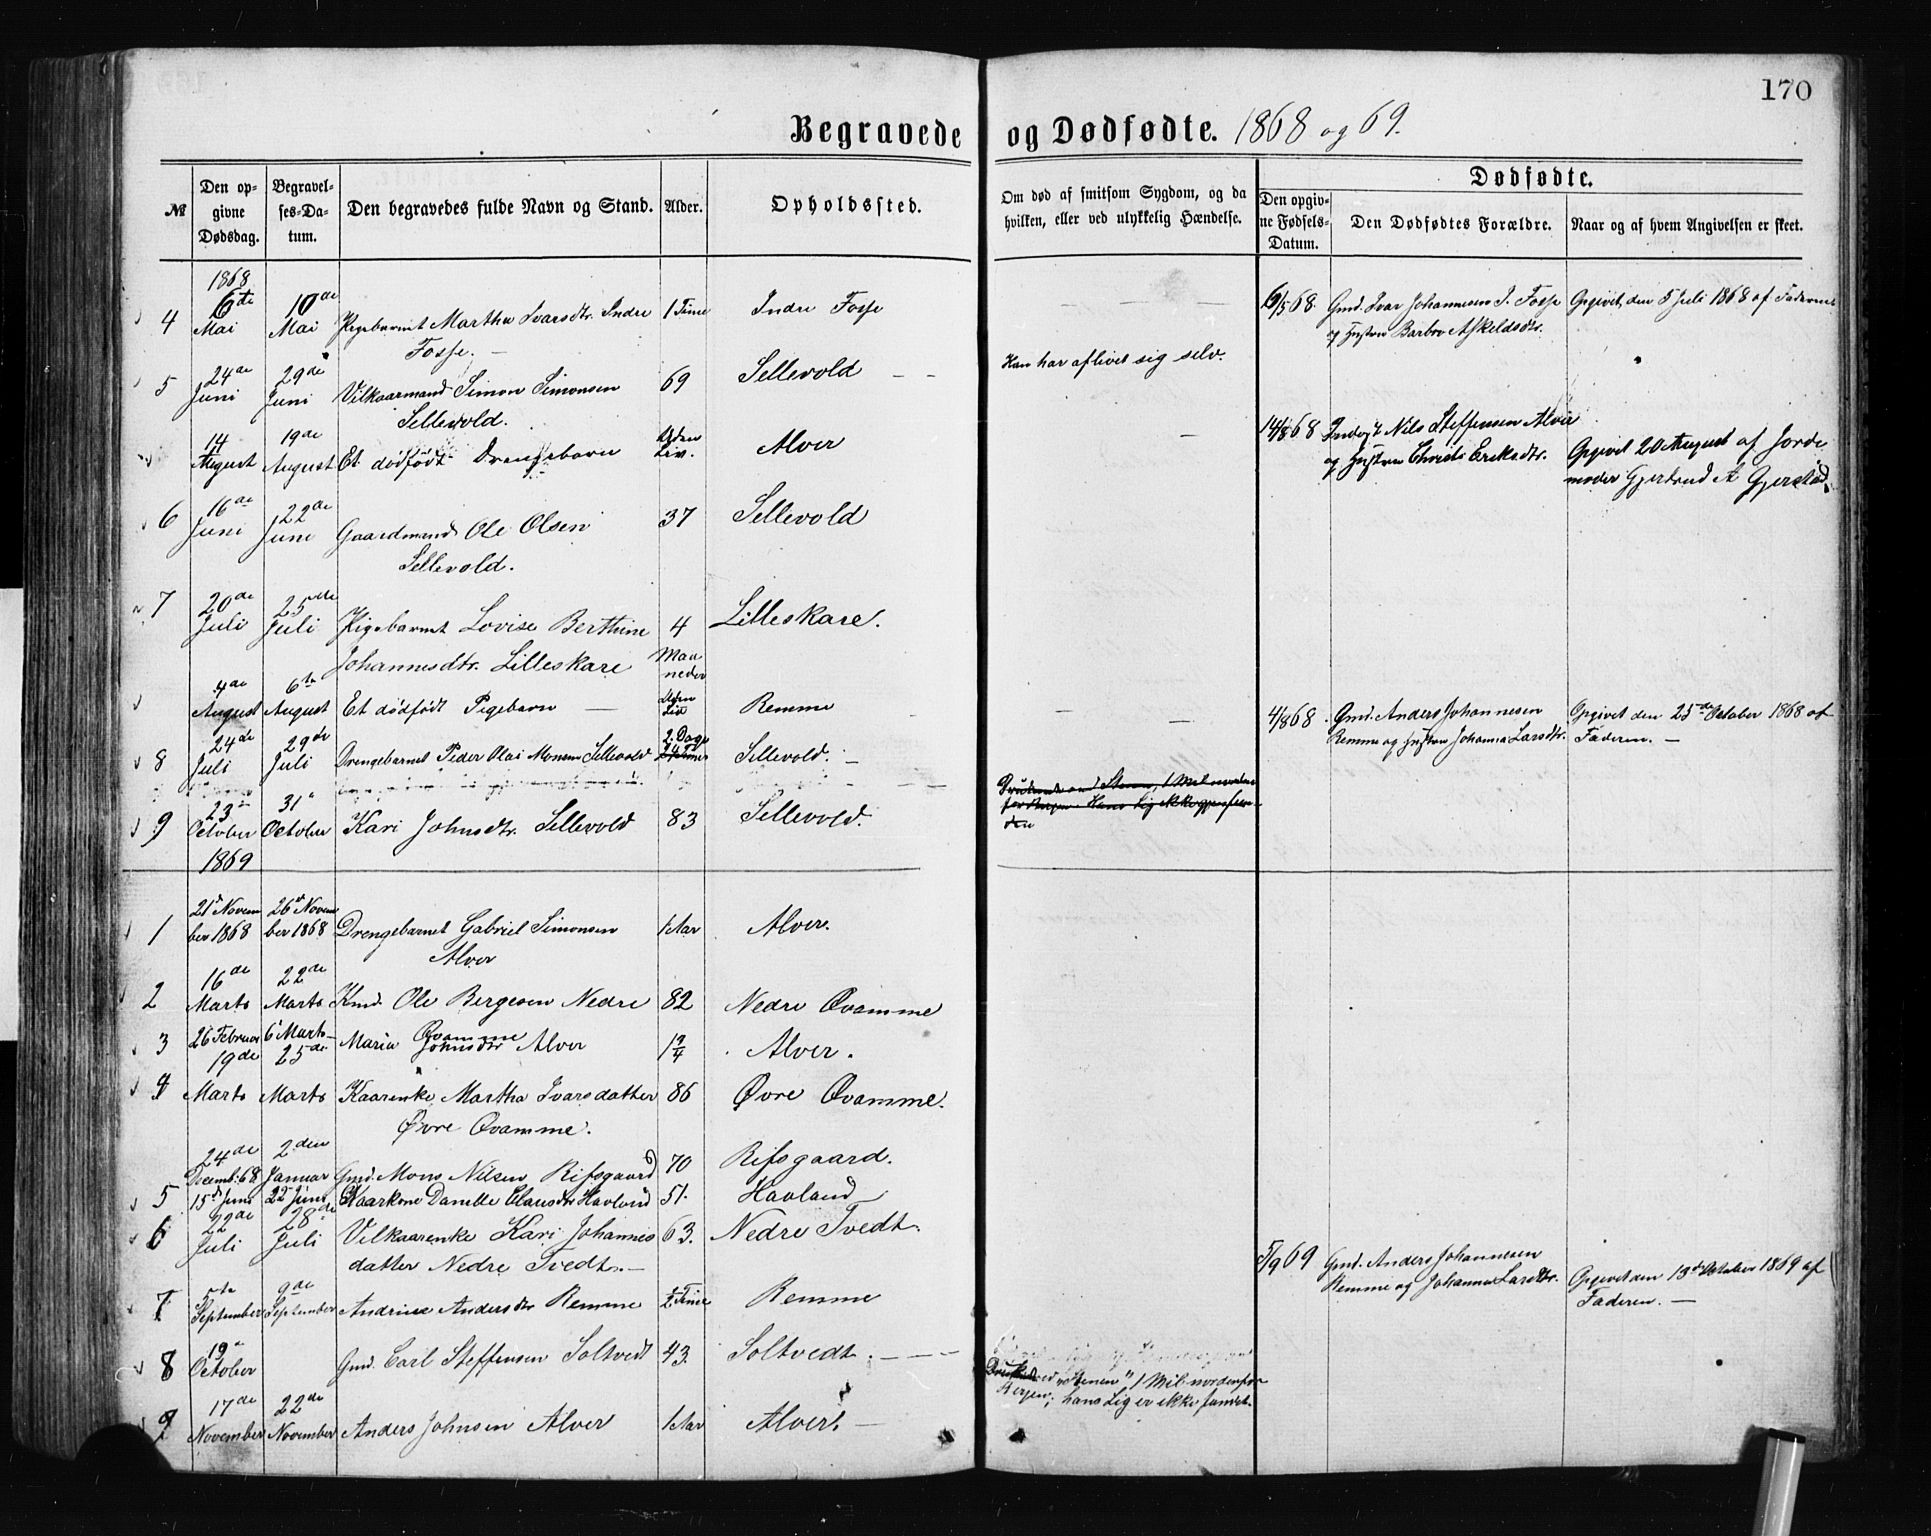 170
Begravede og Dødfødte. 1868 og 69.
№
Den opgivne Dødsdag.
Begravelses-Datum.
Den begravedes fulde Navn og Stand.
Alder.
Opholdssted.
Om død af smitsom Sygdom, og da hvilken, eller ved ulykkelig Hændelse.
Dødfødte.
Den opgivne Fødsels-Datum.
Den Dødfødtes Forældre.
Naar og af hvem Angivelsen er skeet.
1868
4 6te Mai 10de Mai Pigebarnet Martha Ivarsdtr. Indre Fosse. — 1 Time Indre Fosse — — — 6/5 68 Gmd. Ivar Johannesen I. Fosse og Hustru Barbro Askeldsdtr. Opgivet den 5 Juli 1868 af Faderen
5 24de Juni 29de Juni Vilkaarmand Simon Simonsen Sellevold. 69 Sellevold — — Han har aflivet sig selv.
14 August 19de August Et dødfødt Drengebarn Uden Liv. Alver — 14/8 68 Nils Steffensen Alver og Hustru Christi Eriksdtr. Opgivet 20 August af Jordemoder Gjertrud A Gjerstad.
6 16de Juni 22de Juni Gaardmand Ole Olsen Sellevold. 37 Sellevold
7 20de Juli 25de Juli Pigebarnet Lovise Berthine Johannesdtr. Lilleskare 4 Maaneder Lilleskare.
4de August 6te August Et dødfødt Pigebarn — Uden Liv Remme — — 4/8 68. Gmd. Anders Johannesen Remme og Hustru Johanna Larsdtr. Opgivet den 25de October 1868 af Faderen. —
8 24de Juli 29de Juli Drengebarnet Peder Olai Monsen Sellevold 2 Dage Sellevold. —
9 23de October 31te October Kari Johnsdtr. Sellevold 83 Sellevold.
1869
1 21de November 1868 26de November 1868 Drengebarnet Gabriel Simonsen Alver 1 Aar Alver.
2 16de Marts 22de Marts Kmd. Ole Bergesen Nedre Qvamme 82 Nedre Qvamme
3 26 Februar 6 Marts Maria Johnsdtr Alver 1 3/4 Alver.
4 19de Marts 25de Marts Kaarenke Martha Ivarsdatter Øvre Qvamme. 86 Øvre Qvamme.
24de Decemb. 68 2den Januar Gmd. Mons Nilsen Rifsgaard 70 Rifsgaard.
5 15de Juni 22 Juni Kaarkone Danille Clausdtr Havland 51. Havland
6 22de Juli 28de Juli Vilkaarenke Kari Johannesdatter Nedre Tvedt. — 63. Nedre Tvedt.
7 5te September 9de September Andrine Andersdtr Remme 1/2 Time Remme 5/9 69 Gmd. Anders Johannesen Remme og Johanna Larsdtr. Opgivet den 13de October 1869 af Faderen. —
8 19de October Gmd. Carl Steffensen Soltvedt 43. Soltvedt. — — — Druknet ved "Stenen" 1 Mil nordenfor Bergen; hans Lig er ikke fundet.
9 17de November 22de November Anders Johnsen Alver 1 Aar Alver. —